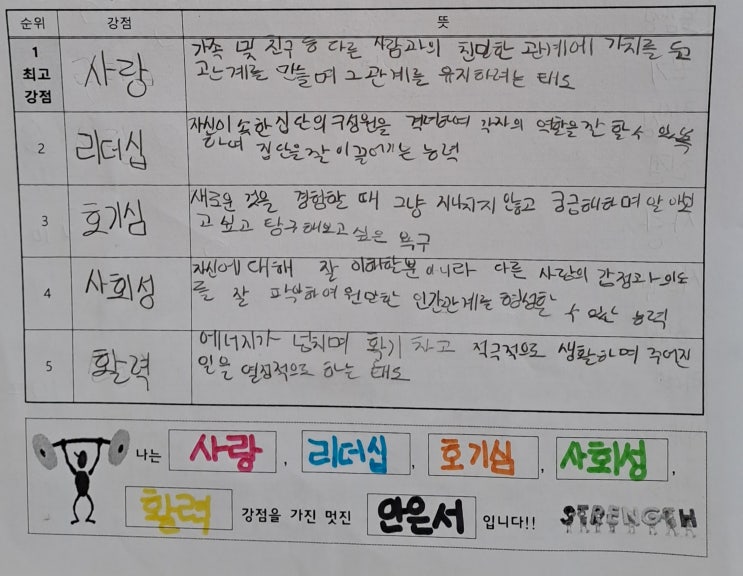 순위 강점 뜻
1 최고 강점 사랑 가족 및 친구 등 다른 사람과의 친밀한 관계에 가치를 두고
관계를 만들며 그 관계를 유지하려는 태도
2 리더십 자신이 속한 집단의 구성원을 격려하여 각자의 역할을 잘 할 수 있도록
하며 집단을 잘 이끌어가는 능력
3 호기심 새로운 것을 경험할 때 그냥 지나치지 않고 궁금해하며 알아보
고 싶고 탐구해보고 싶은 욕구
4 사회성 자신에 대해 잘 이해할뿐 아니라 다른 사람의 감정과 의도
를 잘 파악하여 원만한 인간관계를 형성할 수 있는 능력
5 활력 에너지가 넘치며 활기 차고 적극적으로 생활하며 주어진
일을 열정적으로 하는 태도
나는 사랑, 리더십, 호기심, 사회성,
활력 강점을 가진 멋진 안은서 입니다!! STRENGTH